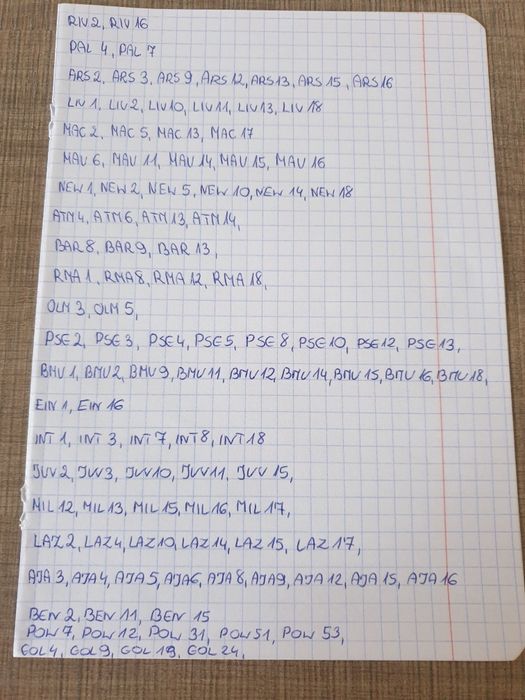 RIV 2, RIV 16
PAL 4, PAL 7
ARS 2, ARS 3, ARS 9, ARS 12, ARS 13, ARS 15, ARS 16
LIV 1, LIV 2, LIV 10, LIV 11, LIV 13, LIV 18
MAC 2, MAC 5, MAC 13, MAC 17
MAU 6, MAU 11, MAU 14, MAU 15, MAU 16
NEW 1, NEW 2, NEW 5, NEW 10, NEW 14, NEW 18
ATM 4, ATM 6, ATM 13, ATM 14,
BAR 8, BAR 9, BAR 13,
RMA 1, RMA 8, RMA 12, RMA 18,
OLM 3, OLM 5,
PSG 2, PSG 3, PSG 4, PSG 5, PSG 8, PSG 10, PSG 12, PSG 13,
BMU 1, BMU 2, BMU 9, BMU 11, BMU 12, BMU 14, BMU 15, BMU 16, BMU 18,
EIN 1, EIN 16
INT 1, INT 3, INT 7, INT 8, INT 18
JUV 2, JUV 3, JUV 10, JUV 11, JUV 15,
MIL 12, MIL 13, MIL 15, MIL 16, MIL 17,
LAZ 2, LAZ 4, LAZ 10, LAZ 14, LAZ 15, LAZ 17,
AJA 3, AJA 4, AJA 5, AJA 6, AJA 8, AJA 9, AJA 12, AJA 15, AJA 16
BEN 2, BEN 11, BEN 15
POW 7, POW 12, POW 31, POW 51, POW 53,
GOL 4, GOL 9, GOL 19, GOL 24,